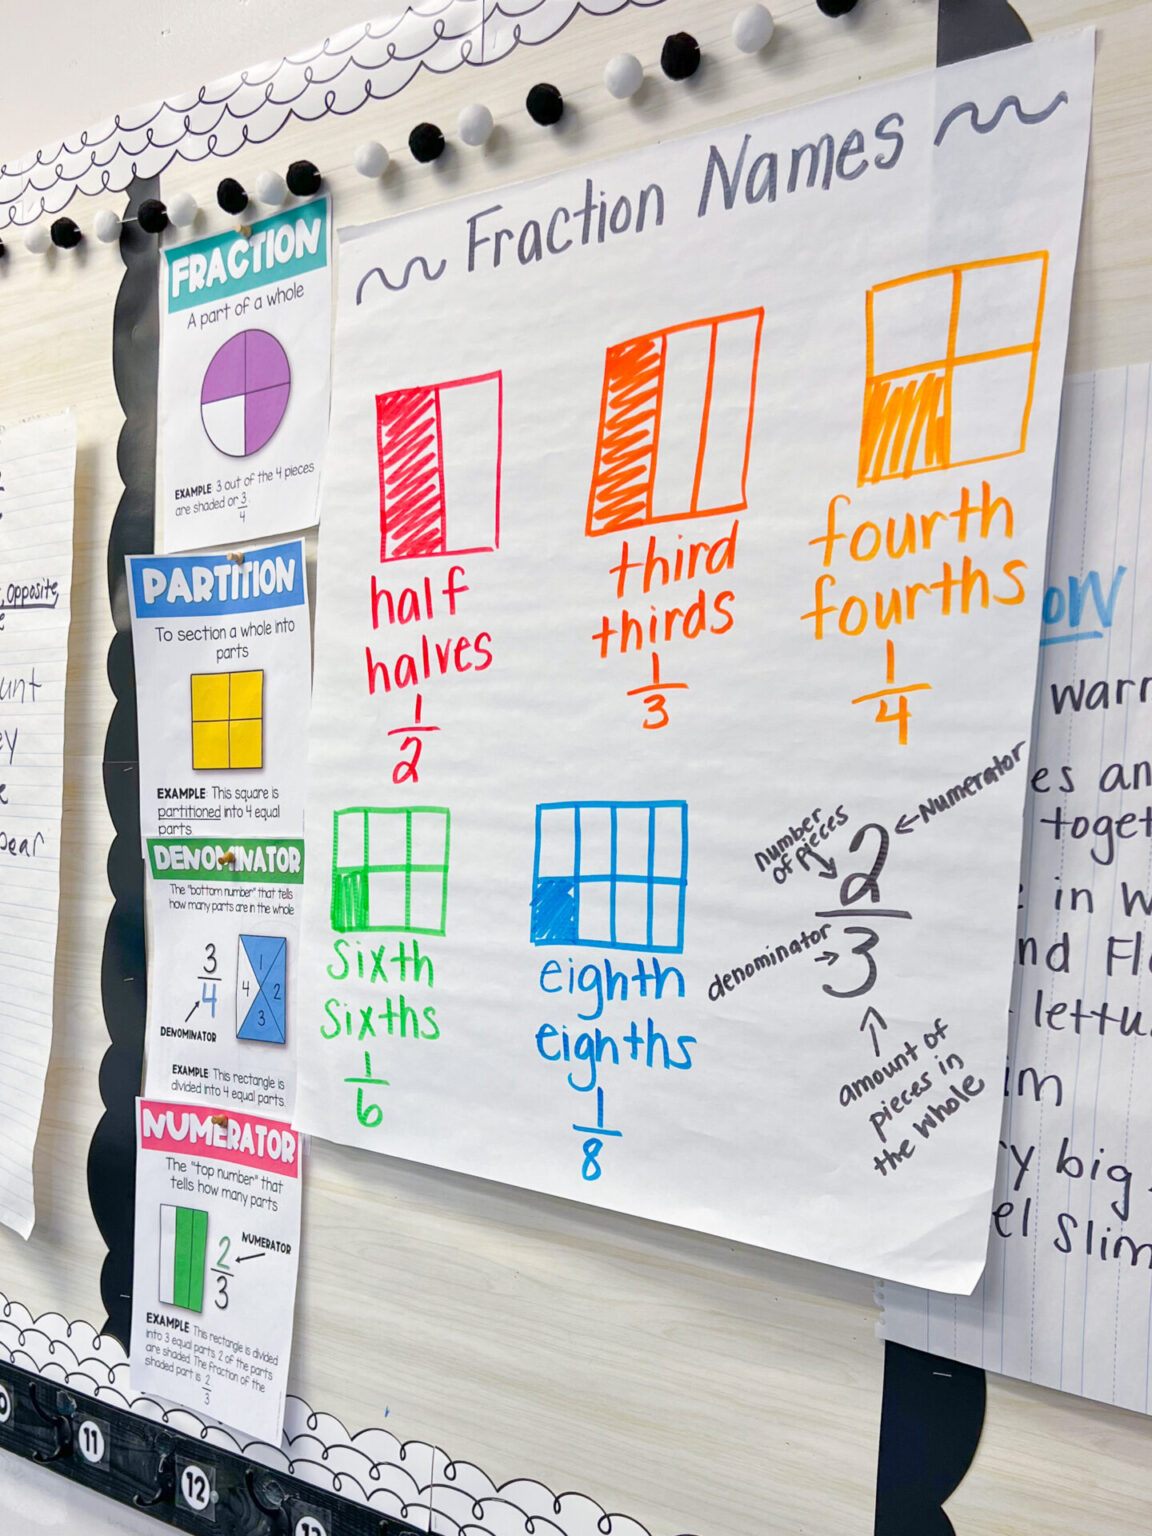 Fraction Names
half
halves
1
2
third
thirds
1
3
fourth
fourths
1
4
sixth
sixths
1
6
eighth
eighths
1
8
number
of pieces
2
Numerator
denominator
3
amount of
pieces in
the whole
FRACTION
A part of a whole
EXAMPLE: 3 out of the 4 pieces
are shaded or 3
4
PARTITION
To section a whole into
parts
EXAMPLE: This square is
partitioned into 4 equal
parts.
DENOMINATOR
The "bottom number" that tells
how many parts are in the whole
3
4
DENOMINATOR
1
4 2
3
EXAMPLE: This rectangle is
divided into 4 equal parts.
NUMERATOR
The "top number" that
tells how many parts
2
3
NUMERATOR
EXAMPLE: This rectangle is divided
into 3 equal parts. 2 of the parts
are shaded. The fraction of the
shaded part is 2
3
opposite,
ow
es an
in
nd
big
11
12